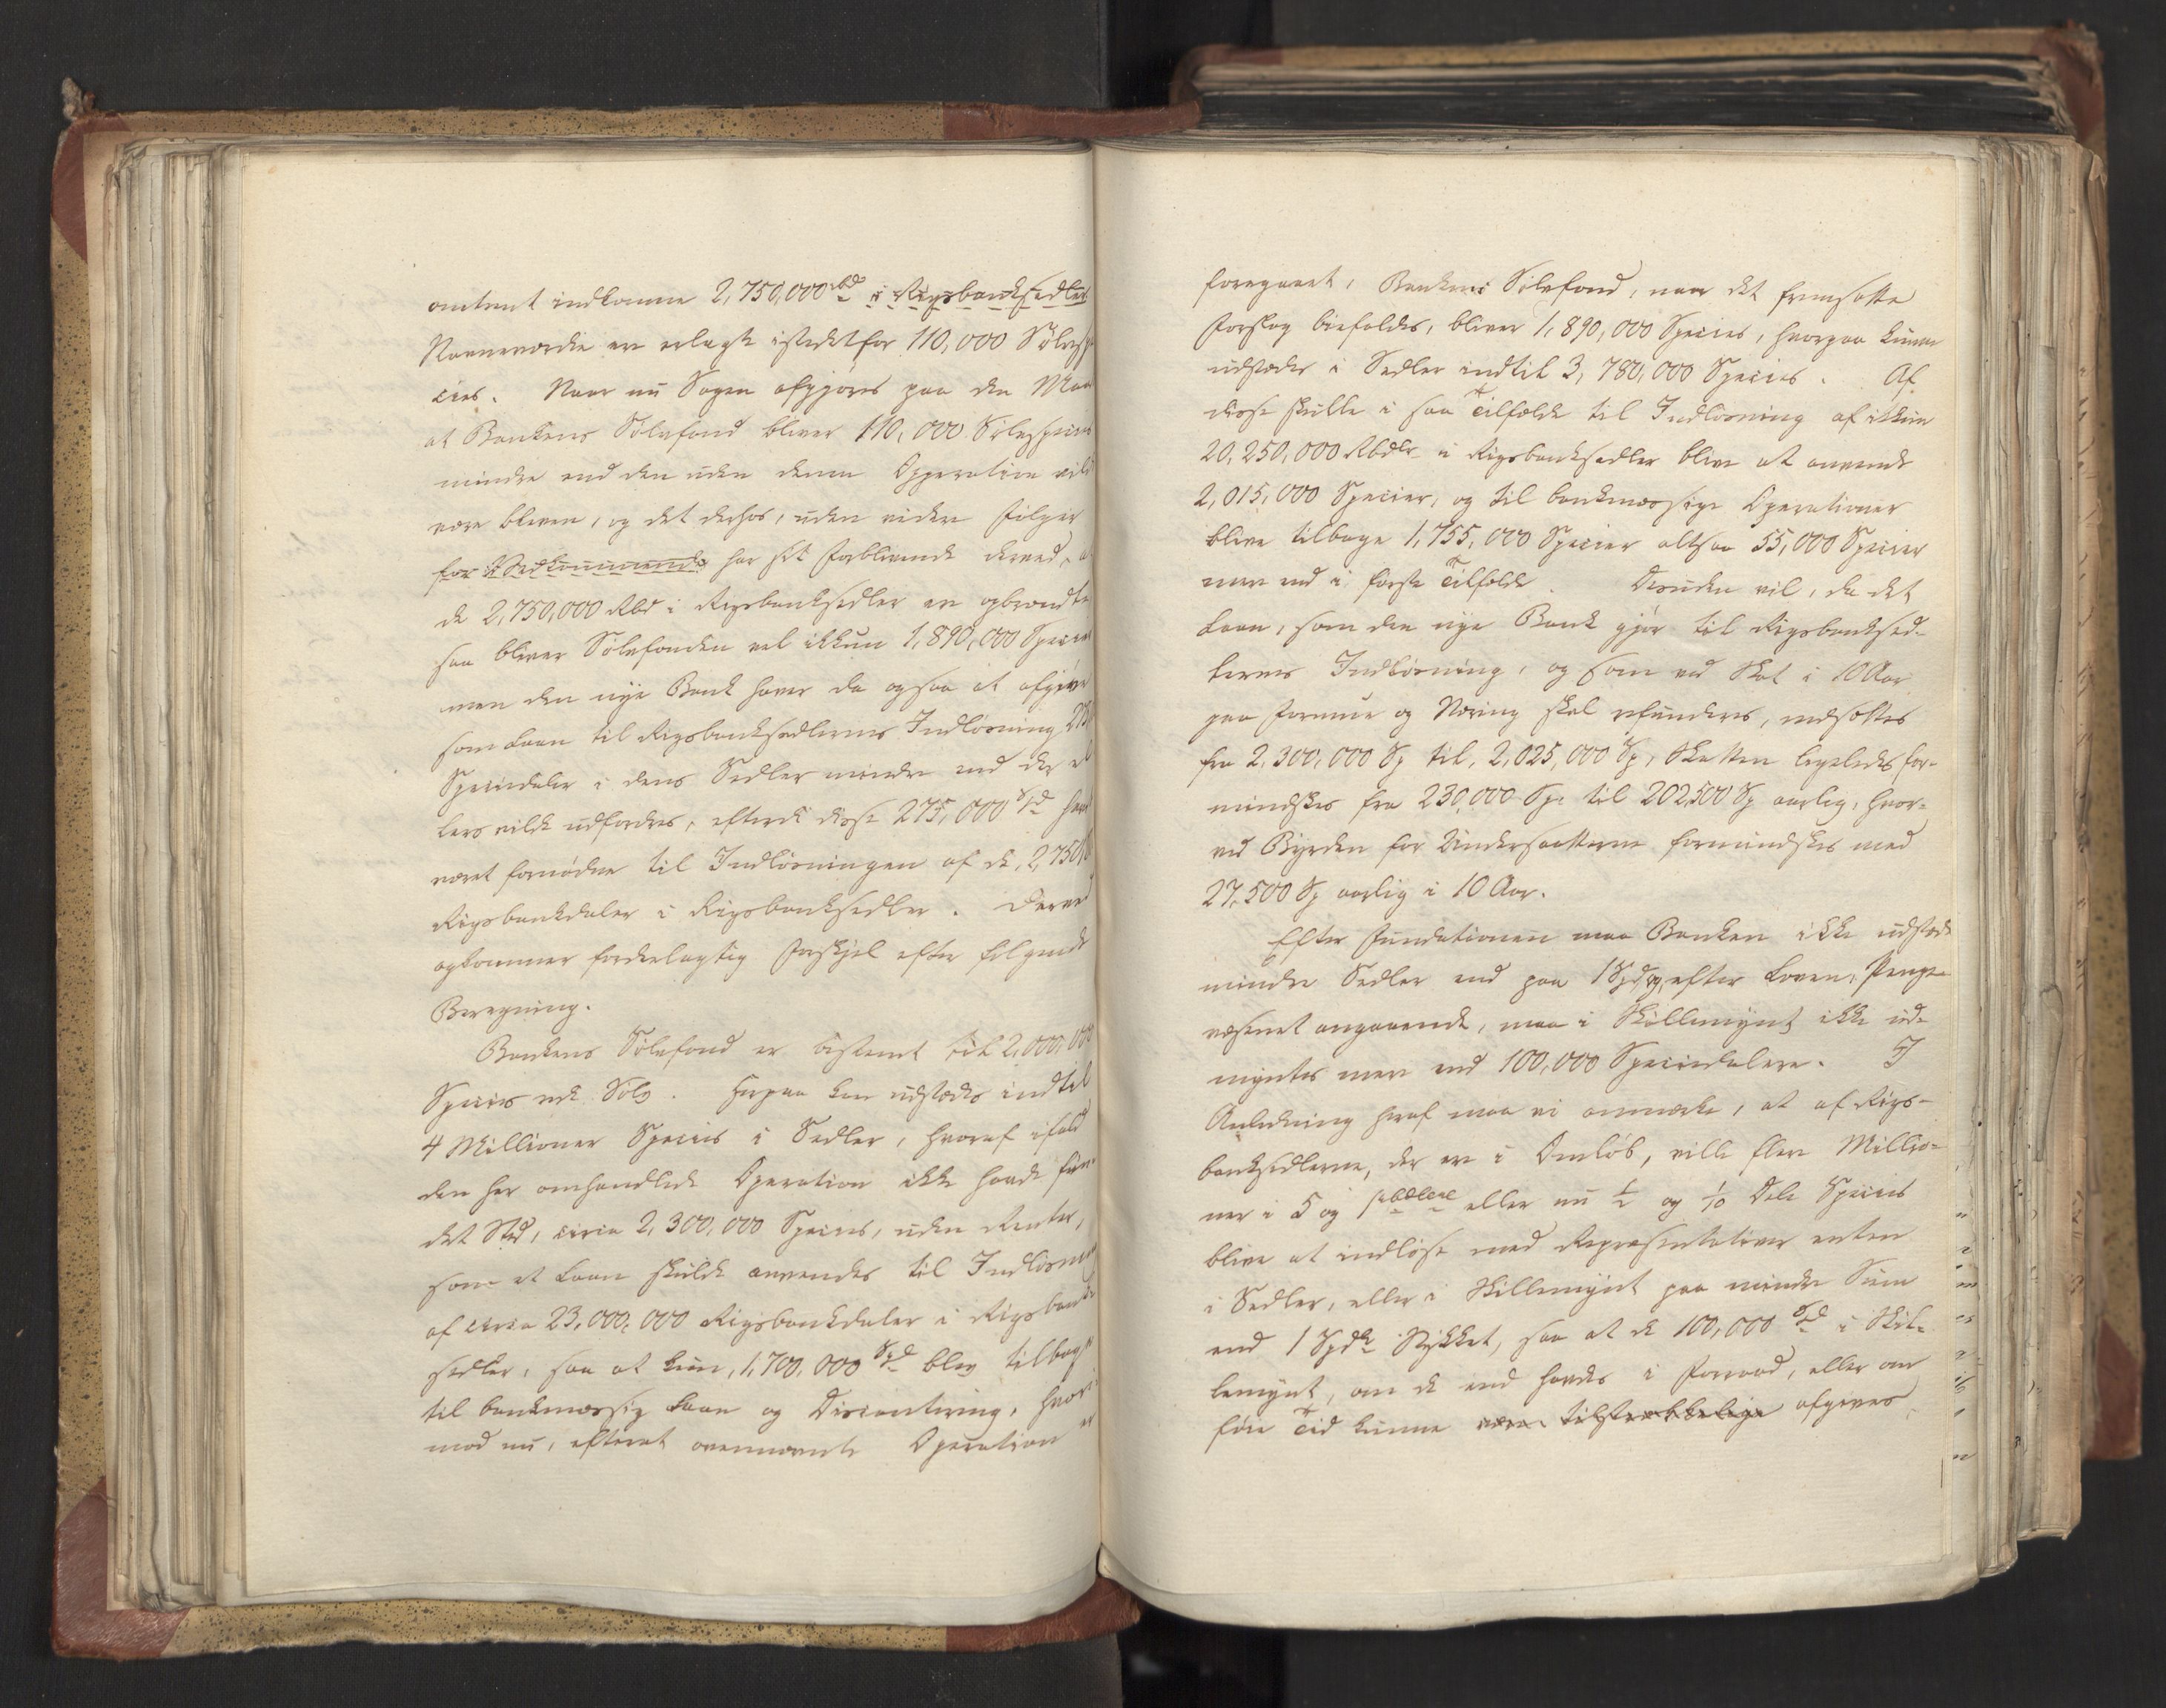 omtrent indkomme 2,750,000 rbd i Rigsbanksedler
Navneværdie er erlagt istedetfor 110,000 Sølvspe
cies. Naar nu Sagen afgjøres paa den Maa
at Bankens Sølvfond bliver 110,000 Sølvspecies
mindre end den uden denne Opperation vild
være bleven, og det derhos, uden videre Følger
for Vedkommende har sit Forblivende derved, a
de 2,750,000 Rbd i Rigsbanksedler er opbrændte
saa bliver Sølvfonden vel ikkun 1,890,000 Species
men den nye Bank haver da ogsaa at afgive
som Laan til Rigsbanksedlernes Indløsning 275
Speciedaler i dens Sedler mindre end der el
lers vilde udfordres, efterdi disse 275,000 Spd have
været fornødne til Indløsningen af de 2,750,0
Rigsbankdaler i Rigsbanksedler. Derved
opkommer fordeelagtig Forskjel efter følgende
Beregning.
Bankens Sølvfond er bestemt til 2,000,000
Species udi Sølv. Herpaa kan udstædes indtil
4 Millioner Species i Sedler, hvoraf ifald
den her omhandlede Operation ikke havde fun-
det Sted, circa 2,300,000 Species, uden Renter,
som et Laan skulde anvendes til Indløsning
af circa 23,000,000 Rigsbankdaler i Rigsbank
sedler, saa at kun 1,700,000 Spd blev tilbage
til bankmæssig Laan og Discontering, hvori-
mod nu, efterat ovennævnte Operation er
foregaaet, Bankens Sølvfond, naar det fremsatte
Forslag biefaldes, bliver 1,890,000 Species, hvorpaa kunne
udstædes i Sedler indtil 3,780,000 Species. Af
disse skulle i saa Tilfælde til Indløsning af ikkun
20,250,000 Rbdlr i Rigsbanksedler blive at anvende
2,015,000 Specier, og til bankmæssige Operationer
blive tilbage 1,755,000 Specier altsaa 55,000 Specier
mere end i første Tilfælde. Desuden vil, da det
Laan, som den nye Bank gjør til Rigsbanksed-
lernes Indløsning, og som ved Skat i 10 Aar
paa Formue og Næring skal refunderes, nedsættes
fra 2,300,000 Sp til 2,025,000 Sp, Skatten ligeledes for-
mindskes fra 230,000 Sp. til 202,500 Sp aarlig, hvor-
ved Byrden for Undersaatterne formindskes med
27,500 Sp aarlig i 10 Aar.
Efter Fundationen maa Banken ikke udstæde
mindre Sedler end paa 1 Spd, og efter Loven, Penge-
væsenet angaaende, maa i Skillemynt ikke ud-
myntes mere end 100,000 Speciedalere. I
Anledning heraf maa vi anmærke, at af Rigs-
banksedlerne, der ere i Omløb, ville flere Millio-
ner i 5 og 1 rbdlere eller nu ½ og 1/10 Dele Species
blive at indløse med Repræsentativer enten
i Sedler, eller i Skillemynt paa mindre Sum
end 1 Spdlr Stykket, saa at de 100,000 Spd i Skil-
lemynt, om de end havdes i Forraad, eller om
føie Tid kunne være tilstrækkelige afgives